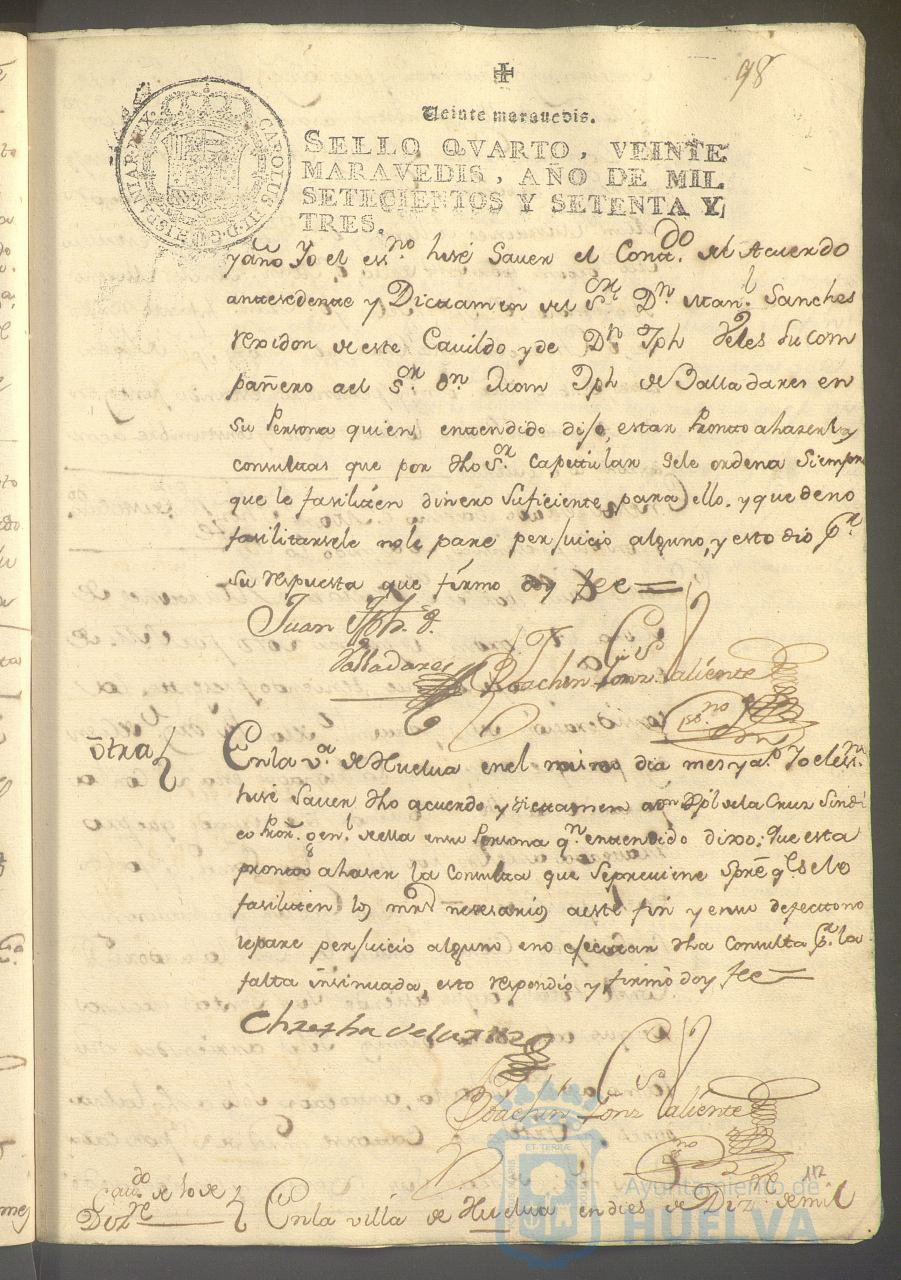 98
Veinte marauedis.
SELLO QVARTO, VEINTE
MARAVEDIS, AÑO DE MIL
SETECIENTOS Y SETENTA Y
TRES.
CAROLUS III D.G. HISPANIAR REX
y año Yo el esno hisé Saver el Contdo. del Acuerdo
antesedente y Dictamen del Sor. Dn Manl. Sanches
rexidor de este Cavildo y de Dn Jph Veles Su com
pañero a el Sor. Dn Juan Jph de Balladares en
Su Persona quien entendido dijo, estar Prontto a haser las
consultas que por dho Sor. Capittular sele ordena Siempre
que le fasiliten dinero Suficiente para ello. y que de no
fasilitarsele no le pare perjuicio alguno, y esto dió pr
su respuesta que firmo doy fee
Juan Jph. d.
Valladares
Joachin Gonz Valiente
esno
ôtra
En la va. de Huelva en el mismo dia mes y ao. Yo el essno.
hisé Saver dho acuerdo y dictamen a dn Xpl de la Cruz Sindi
co Pror. genl. de ella en su Persona qn entendido dixo: Que esta
pronto a haser la Consulta que Sepreviene Spre ql Se le
fasiliten los mrs nesesarios a este fin y en su defecto no
lepare perjuicio alguno en o ejecutar dha Consulta pr. la
falta insinuada, esto respondió y firmó doy fee
Chrstbl de la Cruz
Joachin Gonz Valiente
esno
Cavdo de 10 de
Dizre
En la villa de Huelva en dies de Dizre de mil
112
Ayuntamiento de
HUELVA